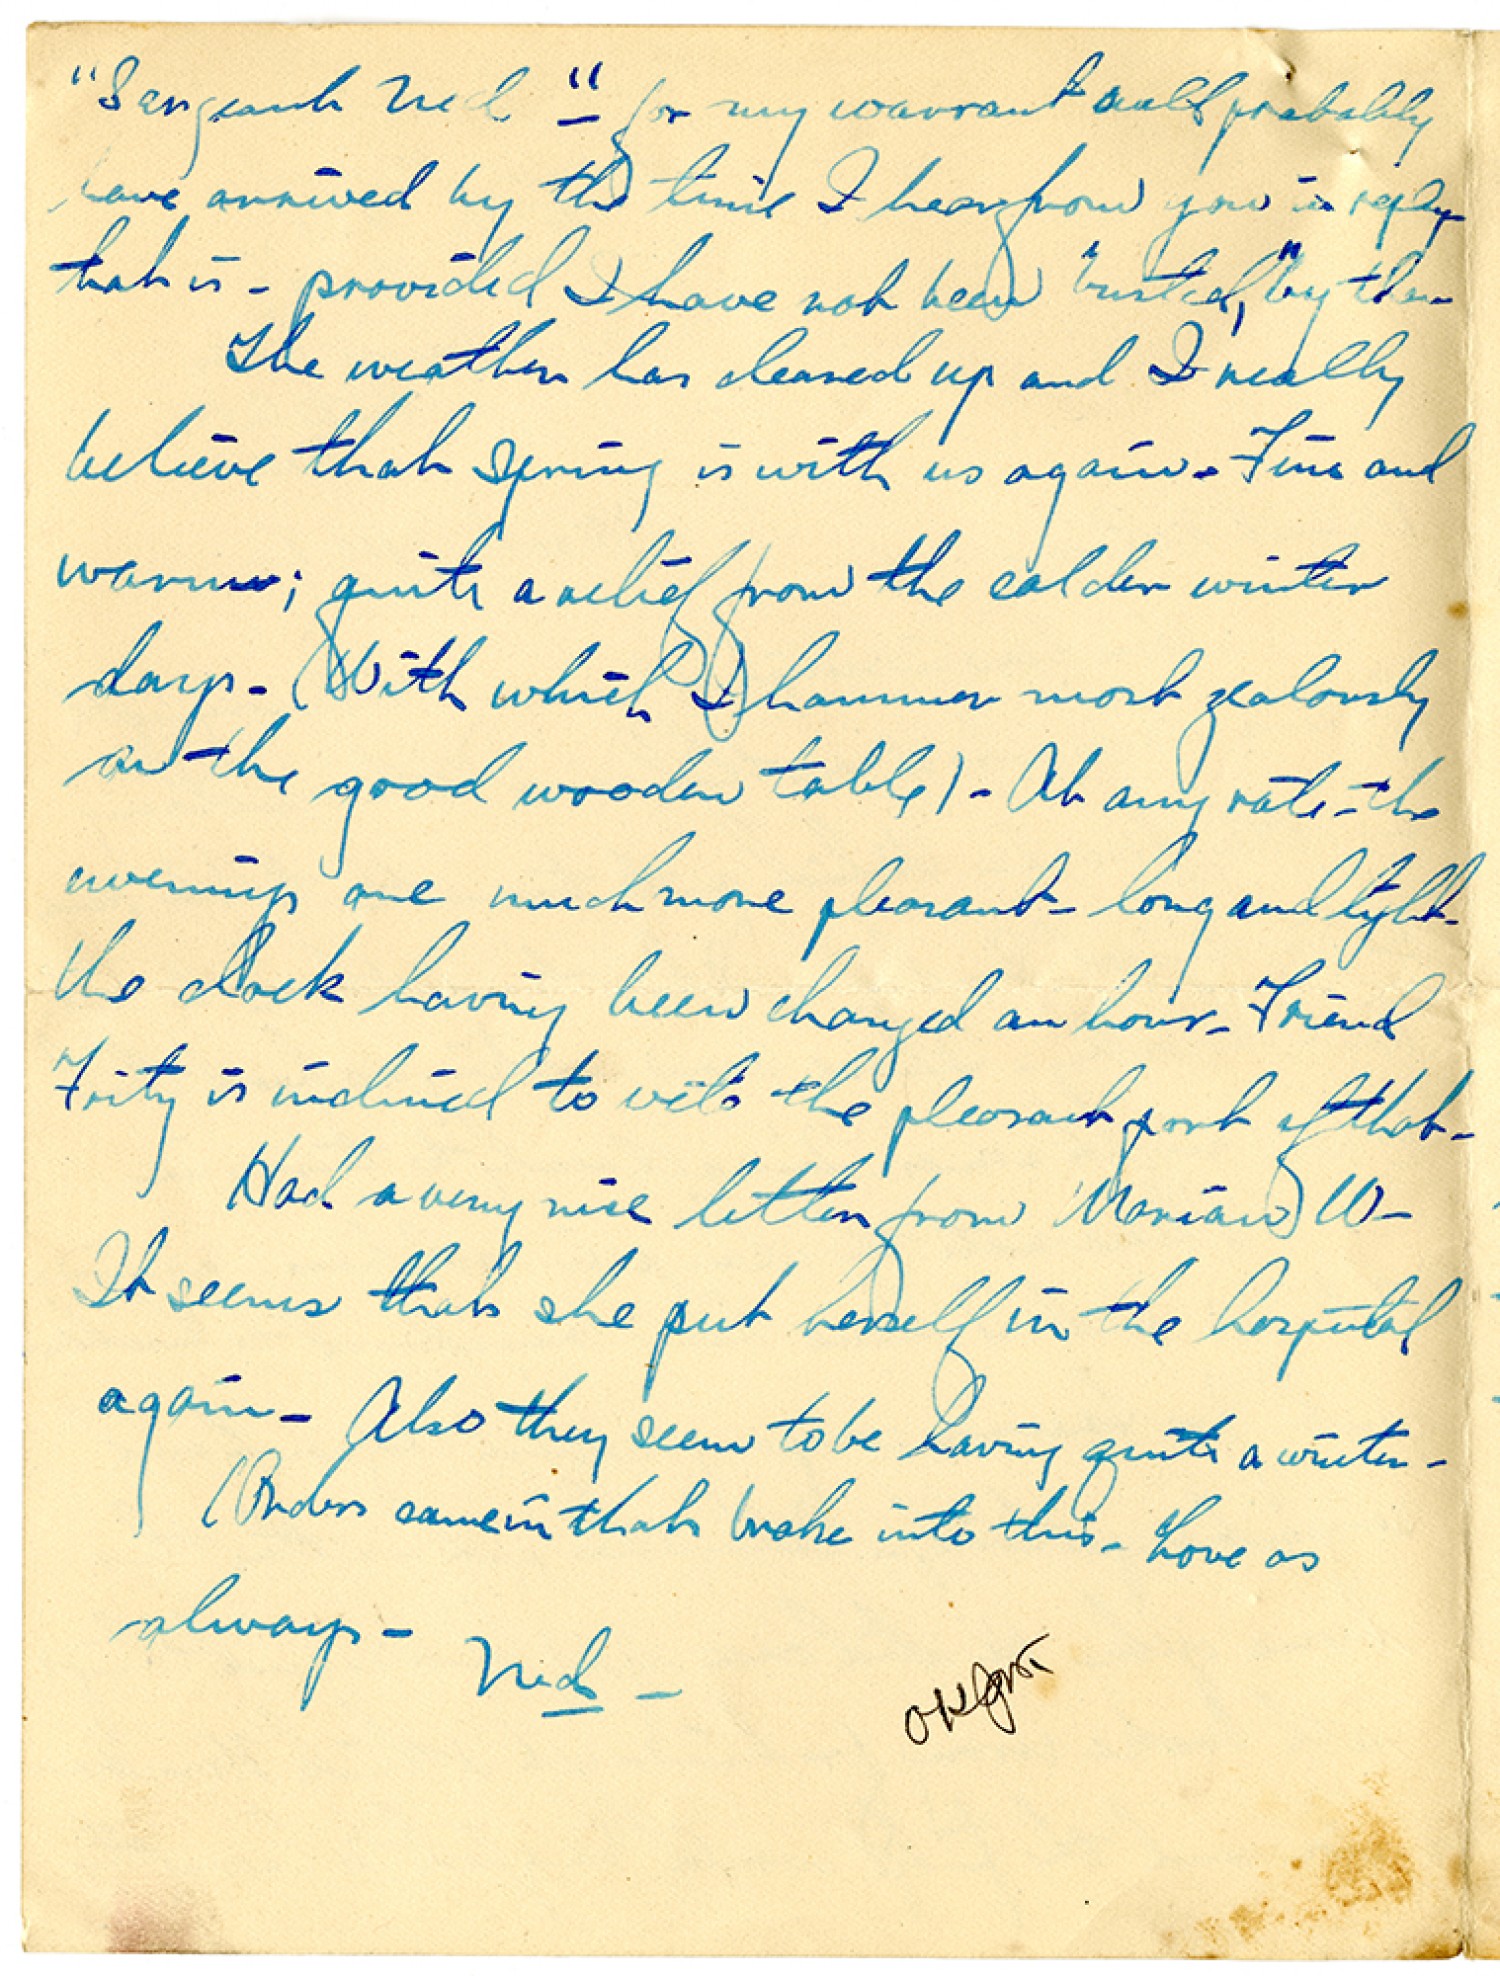 "Sargeant Ned" - for my warrant will probably
have arrived by the time I hear from you in reply
that is - provided I have not been "busted," by then -
The weather has cleared up and I really
believe that Spring is with us again - Fine and
warm; quite a relief from the colder winter
days - (With which I hammer most zealously
on the good wooden table) - At any rate - the
evenings are much more pleasant - long and light -
the clock having been changed an hour - Friend
Fritz is inclined to veto the pleasant part of that -
Had a very nice letter from Marian W -
It seems that she put herself in the hospital
again - Also they seem to be having quite a winter -
(Orders came in that broke into this - Love as
always -
Ned -
OK